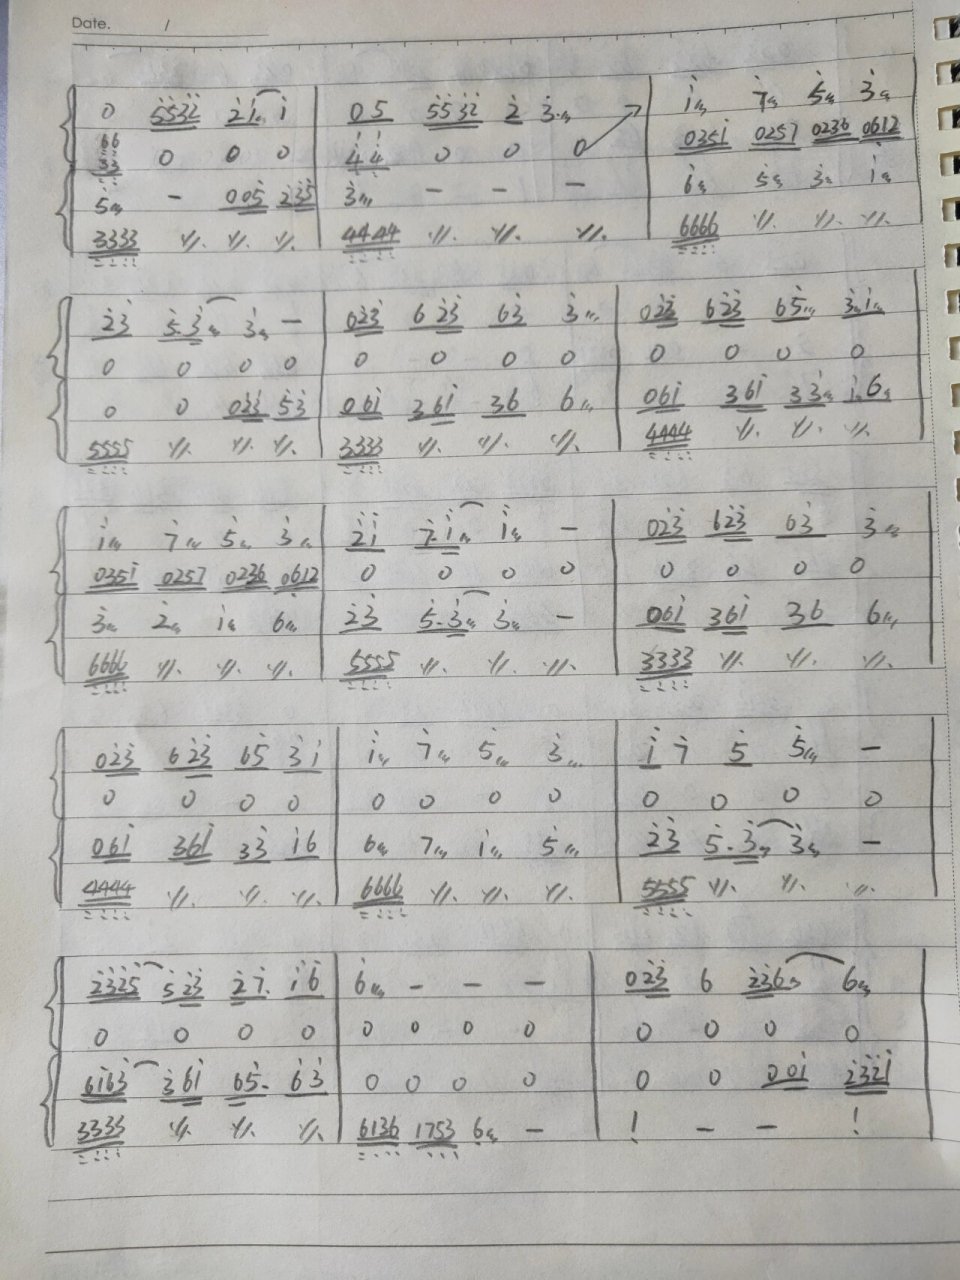 Date. /
0 5532 21 i | 05 5532 2 3 | i 7 5 3
66 33 0 0 0 | 44 0 0 0 | 035i 0257 0236 0612
5 - 005 235 | 3 - - - | 6 5 3 i
3333 〃 〃 〃 | 4444 〃 〃 〃 | 6666 〃 〃 〃
23 5.3 3 - | 023 623 63 3 | 023 623 65 3 i
0 0 0 0 | 0 0 0 0 | 0 0 0 0
0 0 023 53 | 06i 36i 36 6 | 06i 36i 33 i 6
5555 〃 〃 〃 | 3333 〃 〃 〃 | 4444 〃 〃 〃
i 7 5 3 | 2i 7i i - | 023 623 63 3
035i 0257 0236 0612 | 0 0 0 0 | 0 0 0 0
3 2 i 6 | 23 5.3 3 - | 06i 36i 36 6
6666 〃 〃 〃 | 5555 〃 〃 〃 | 3333 〃 〃 〃
023 623 65 3i | i 7 5 3 | i 7 5 5 -
0 0 0 0 | 0 0 0 0 | 0 0 0 0
06i 36i 33 i6 | 6 7 i 5 | 23 5.3 3 -
4444 〃 〃 〃 | 6666 〃 〃 〃 | 5555 〃 〃 〃
2325 523 27. i6 | 6 - - - | 023 6 236 6
0 0 0 0 | 0 0 0 0 | 0 0 0 0
6i63 36i 65. 63 | 0 0 0 0 | 0 0 00i 232i
3333 〃 〃 〃 | 6136 1753 6 - | ! - - !